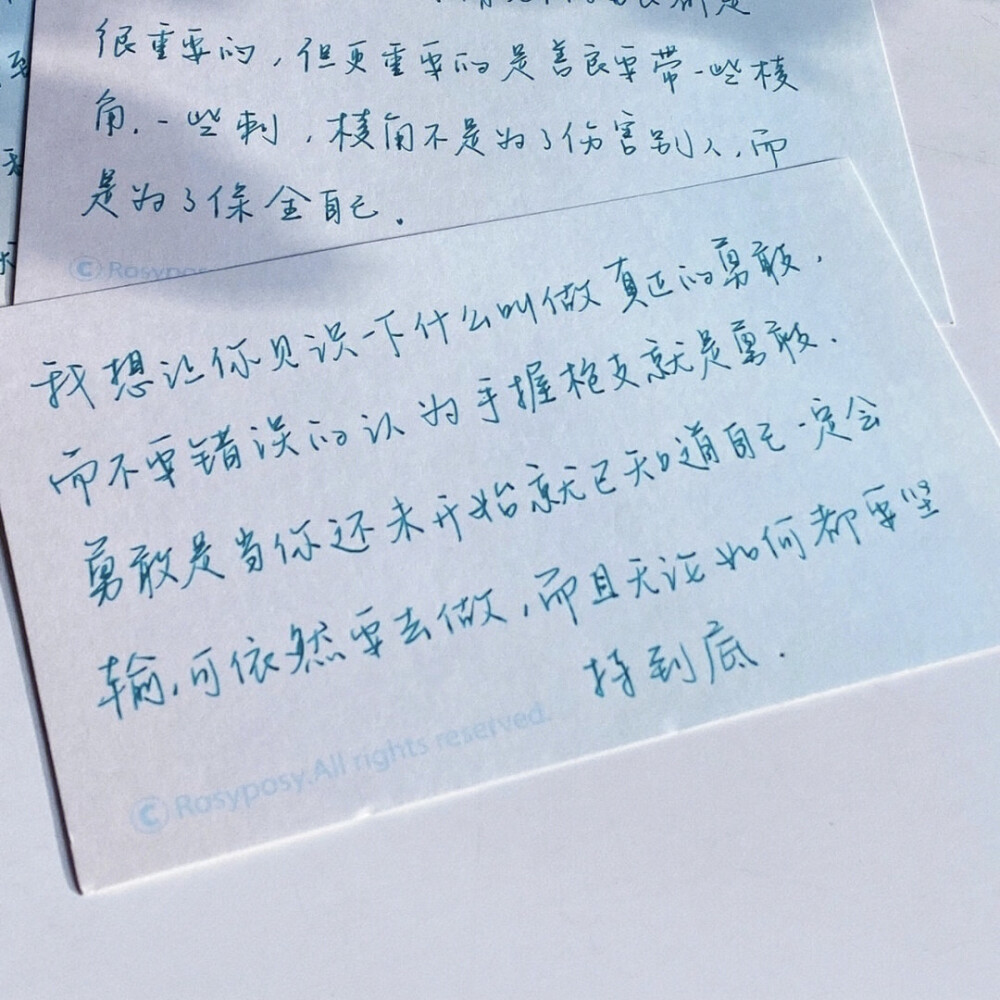 很重要的，但更重要的是善良要带一些棱
角，一些刺，棱角不是为了伤害别人，而
是为了保全自己.
© Rosypos
我想让你见识一下什么叫做真正的勇敢,
而不要错误的认为手握枪支就是勇敢.
勇敢是当你还未开始就已知道自己一定会
输,可依然要去做,而且无论如何都要坚
持到底.
© Rosyposy.All rights reserved.